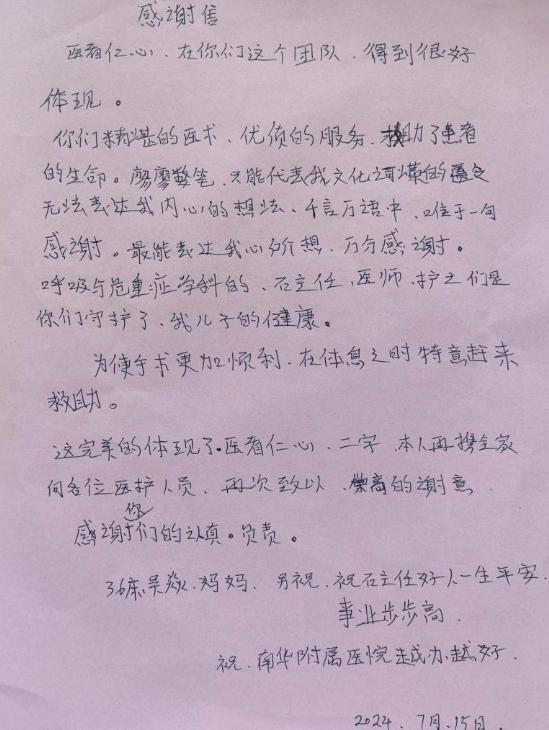 感谢信
医者仁心、在你们这个团队、得到很好
体现。
你们精湛的医术、优质的服务、救助了患者
的生命。寥寥数笔、只能代表我文化词the的
无法表达我内心的想法、千言万语中、唯一一句
感谢。最能表达我心所想、万分感谢。
呼吸与危重症学科的、石主任、医师、护士们是
你们守护了、我儿子的健康。
为使手术更加顺利、在休息之时特意赶来
救助。
这完美的体现了。医者仁心、二字、本人再携全家
向各位医护人员、再次致以、崇高的谢意、
感谢你们的认真。负责。
36床吴焱、妈妈、另祝、祝石主任好人一生平安、
事业步步高、
祝、南华附属医院越办越好、
2024、7月、15日、